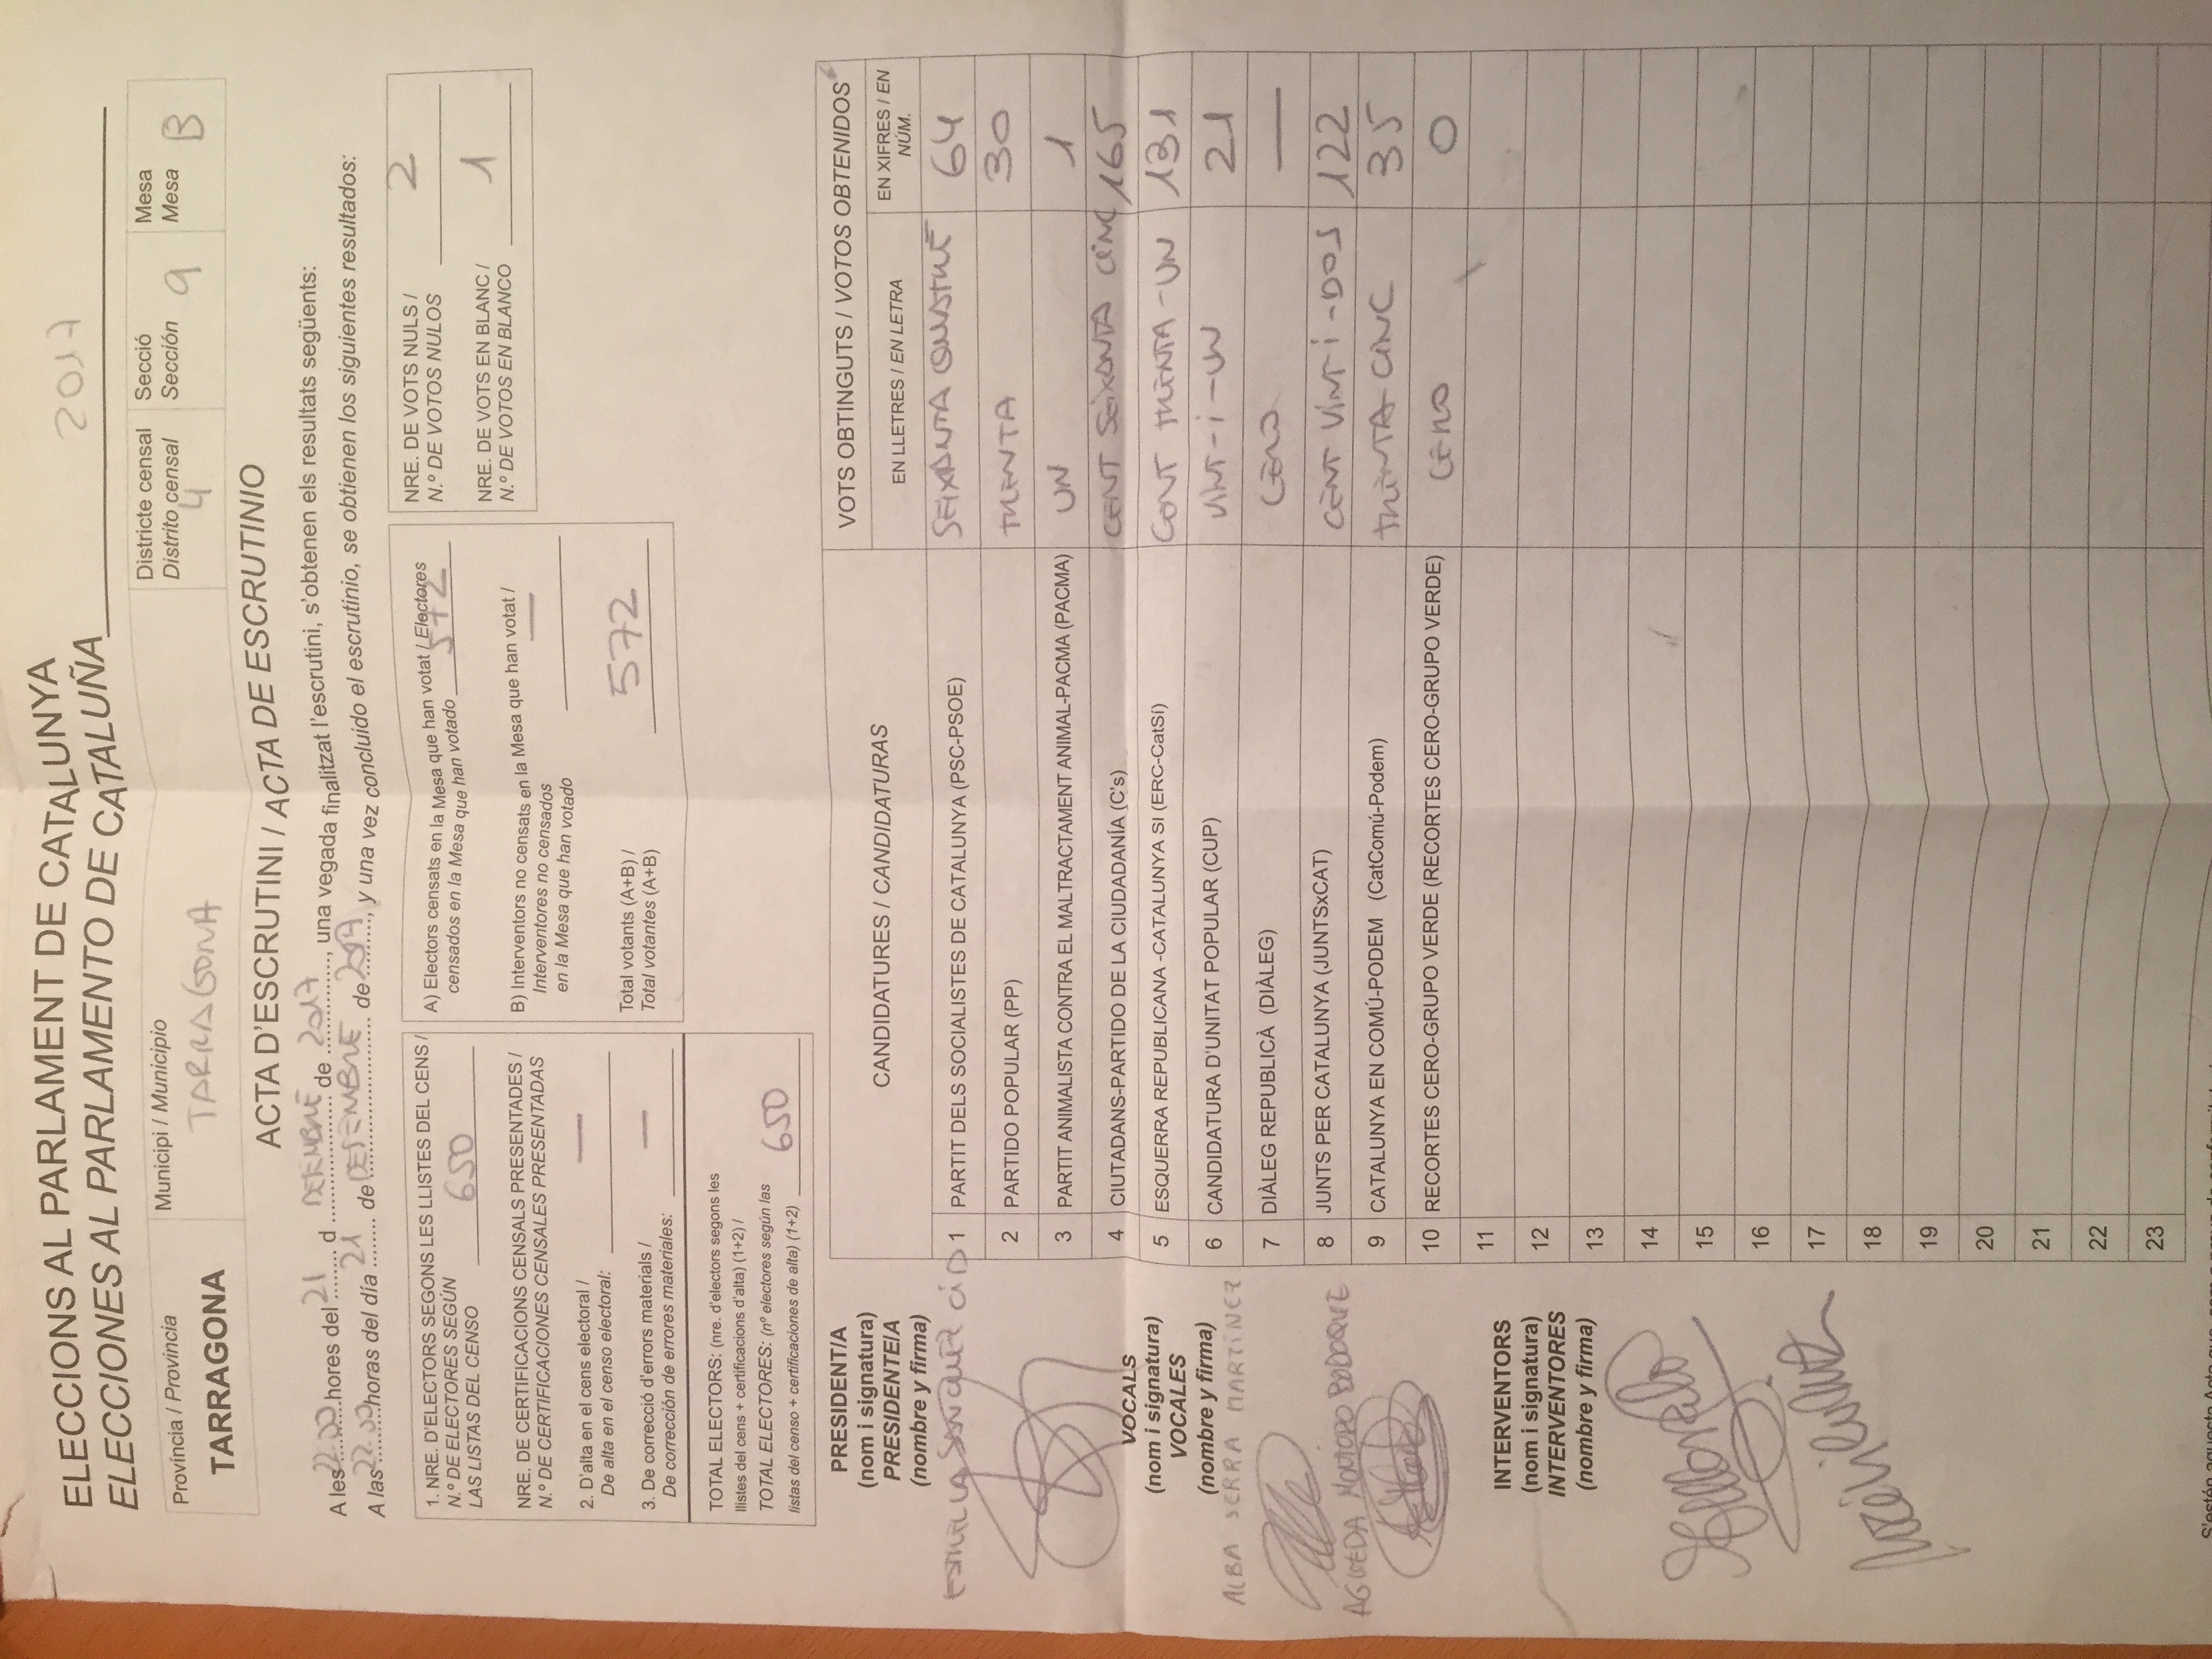 ELECCIONS AL PARLAMENT DE CATALUNYA
ELECCIONES AL PARLAMENTO DE CATALUÑA 2017
Província / Provincia
TARRAGONA
Municipi / Municipio
TARRAGONA
Districte censal
Distrito censal
4
Secció
Sección 9
Mesa
Mesa B
ACTA D'ESCRUTINI / ACTA DE ESCRUTINIO
A les 22.00 hores del 21 d DESEMBRE de 2017, una vegada finalitzat l'escrutini, s'obtenen els resultats següents:
A las 22.00 horas del día 21 de DESEMBRE de 2017, y una vez concluído el escrutinio, se obtienen los siguientes resultados:
1. NRE. D'ELECTORS SEGONS LES LLISTES DEL CENS /
N.º DE ELECTORES SEGÚN
LAS LISTAS DEL CENSO 650
NRE. DE CERTIFICACIONS CENSALS PRESENTADES /
N.º DE CERTIFICACIONES CENSALES PRESENTADAS
2. D'alta en el cens electoral / —
De alta en el censo electoral:
3. De correcció d'errors materials / —
De corrección de errores materiales:
TOTAL ELECTORS: (nre. d'electors segons les
llistes del cens + certificacions d'alta) (1+2) /
TOTAL ELECTORES: (nº electores según las
listas del censo + certificaciones de alta) (1+2) 650
A) Electors censats en la Mesa que han votat / Electores
censados en la Mesa que han votado 572
B) Interventors no censats en la Mesa que han votat /
Interventores no censados —
en la Mesa que han votado
Total votants (A+B) /
Total votantes (A+B) 572
NRE. DE VOTS NULS / 2
N.º DE VOTOS NULOS
NRE. DE VOTS EN BLANC / 1
N.º DE VOTOS EN BLANCO
PRESIDENT/A
(nom i signatura)
PRESIDENTE/A
(nombre y firma)
ESTRELLA SANCHEZ CID
VOCALS
(nom i signatura)
VOCALES
(nombre y firma)
ALBA SERRA MARTÍNEZ
AGUEDA MONTORO BODOQUE
INTERVENTORS
(nom i signatura)
INTERVENTORES
(nombre y firma)
CANDIDATURES / CANDIDATURAS
VOTS OBTINGUTS / VOTOS OBTENIDOS
EN LLETRES / EN LETRA
EN XIFRES / EN
NÚM.
1 PARTIT DELS SOCIALISTES DE CATALUNYA (PSC-PSOE) SEIXANTA QUATRE 64
2 PARTIDO POPULAR (PP) TRENTA 30
3 PARTIT ANIMALISTA CONTRA EL MALTRACTAMENT ANIMAL-PACMA (PACMA) UN 1
4 CIUTADANS-PARTIDO DE LA CIUDADANÍA (C's) CENT SEIXANTA CINC 165
5 ESQUERRA REPUBLICANA -CATALUNYA SI (ERC-CatSí) CENT TRENTA-UN 131
6 CANDIDATURA D'UNITAT POPULAR (CUP) VINT-I-UN 21
7 DIÀLEG REPUBLICÀ (DIÀLEG) CERO —
8 JUNTS PER CATALUNYA (JUNTSxCAT) CENT VINT I-DOS 122
9 CATALUNYA EN COMÚ-PODEM (CatComú-Podem) TRENTA-CINC 35
10 RECORTES CERO-GRUPO VERDE (RECORTES CERO-GRUPO VERDE) CERO 0
11
12
13
14
15
16
17
18
19
20
21
22
23